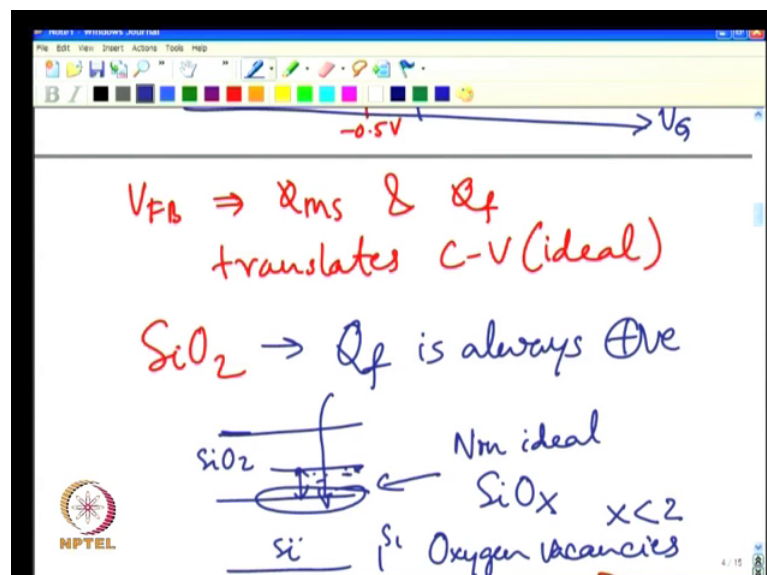 Note1 - Windows Journal
File Edit View Insert Actions Tools Help
B I
-0.5V
VG
VFB ⇒ Qms & Qf
translates C-V (ideal)
SiO2 → Qf is always ⊕ve
Non ideal
SiO2
SiOx x<2
Si
Si Oxygen vacancies
NPTEL
4 / 15